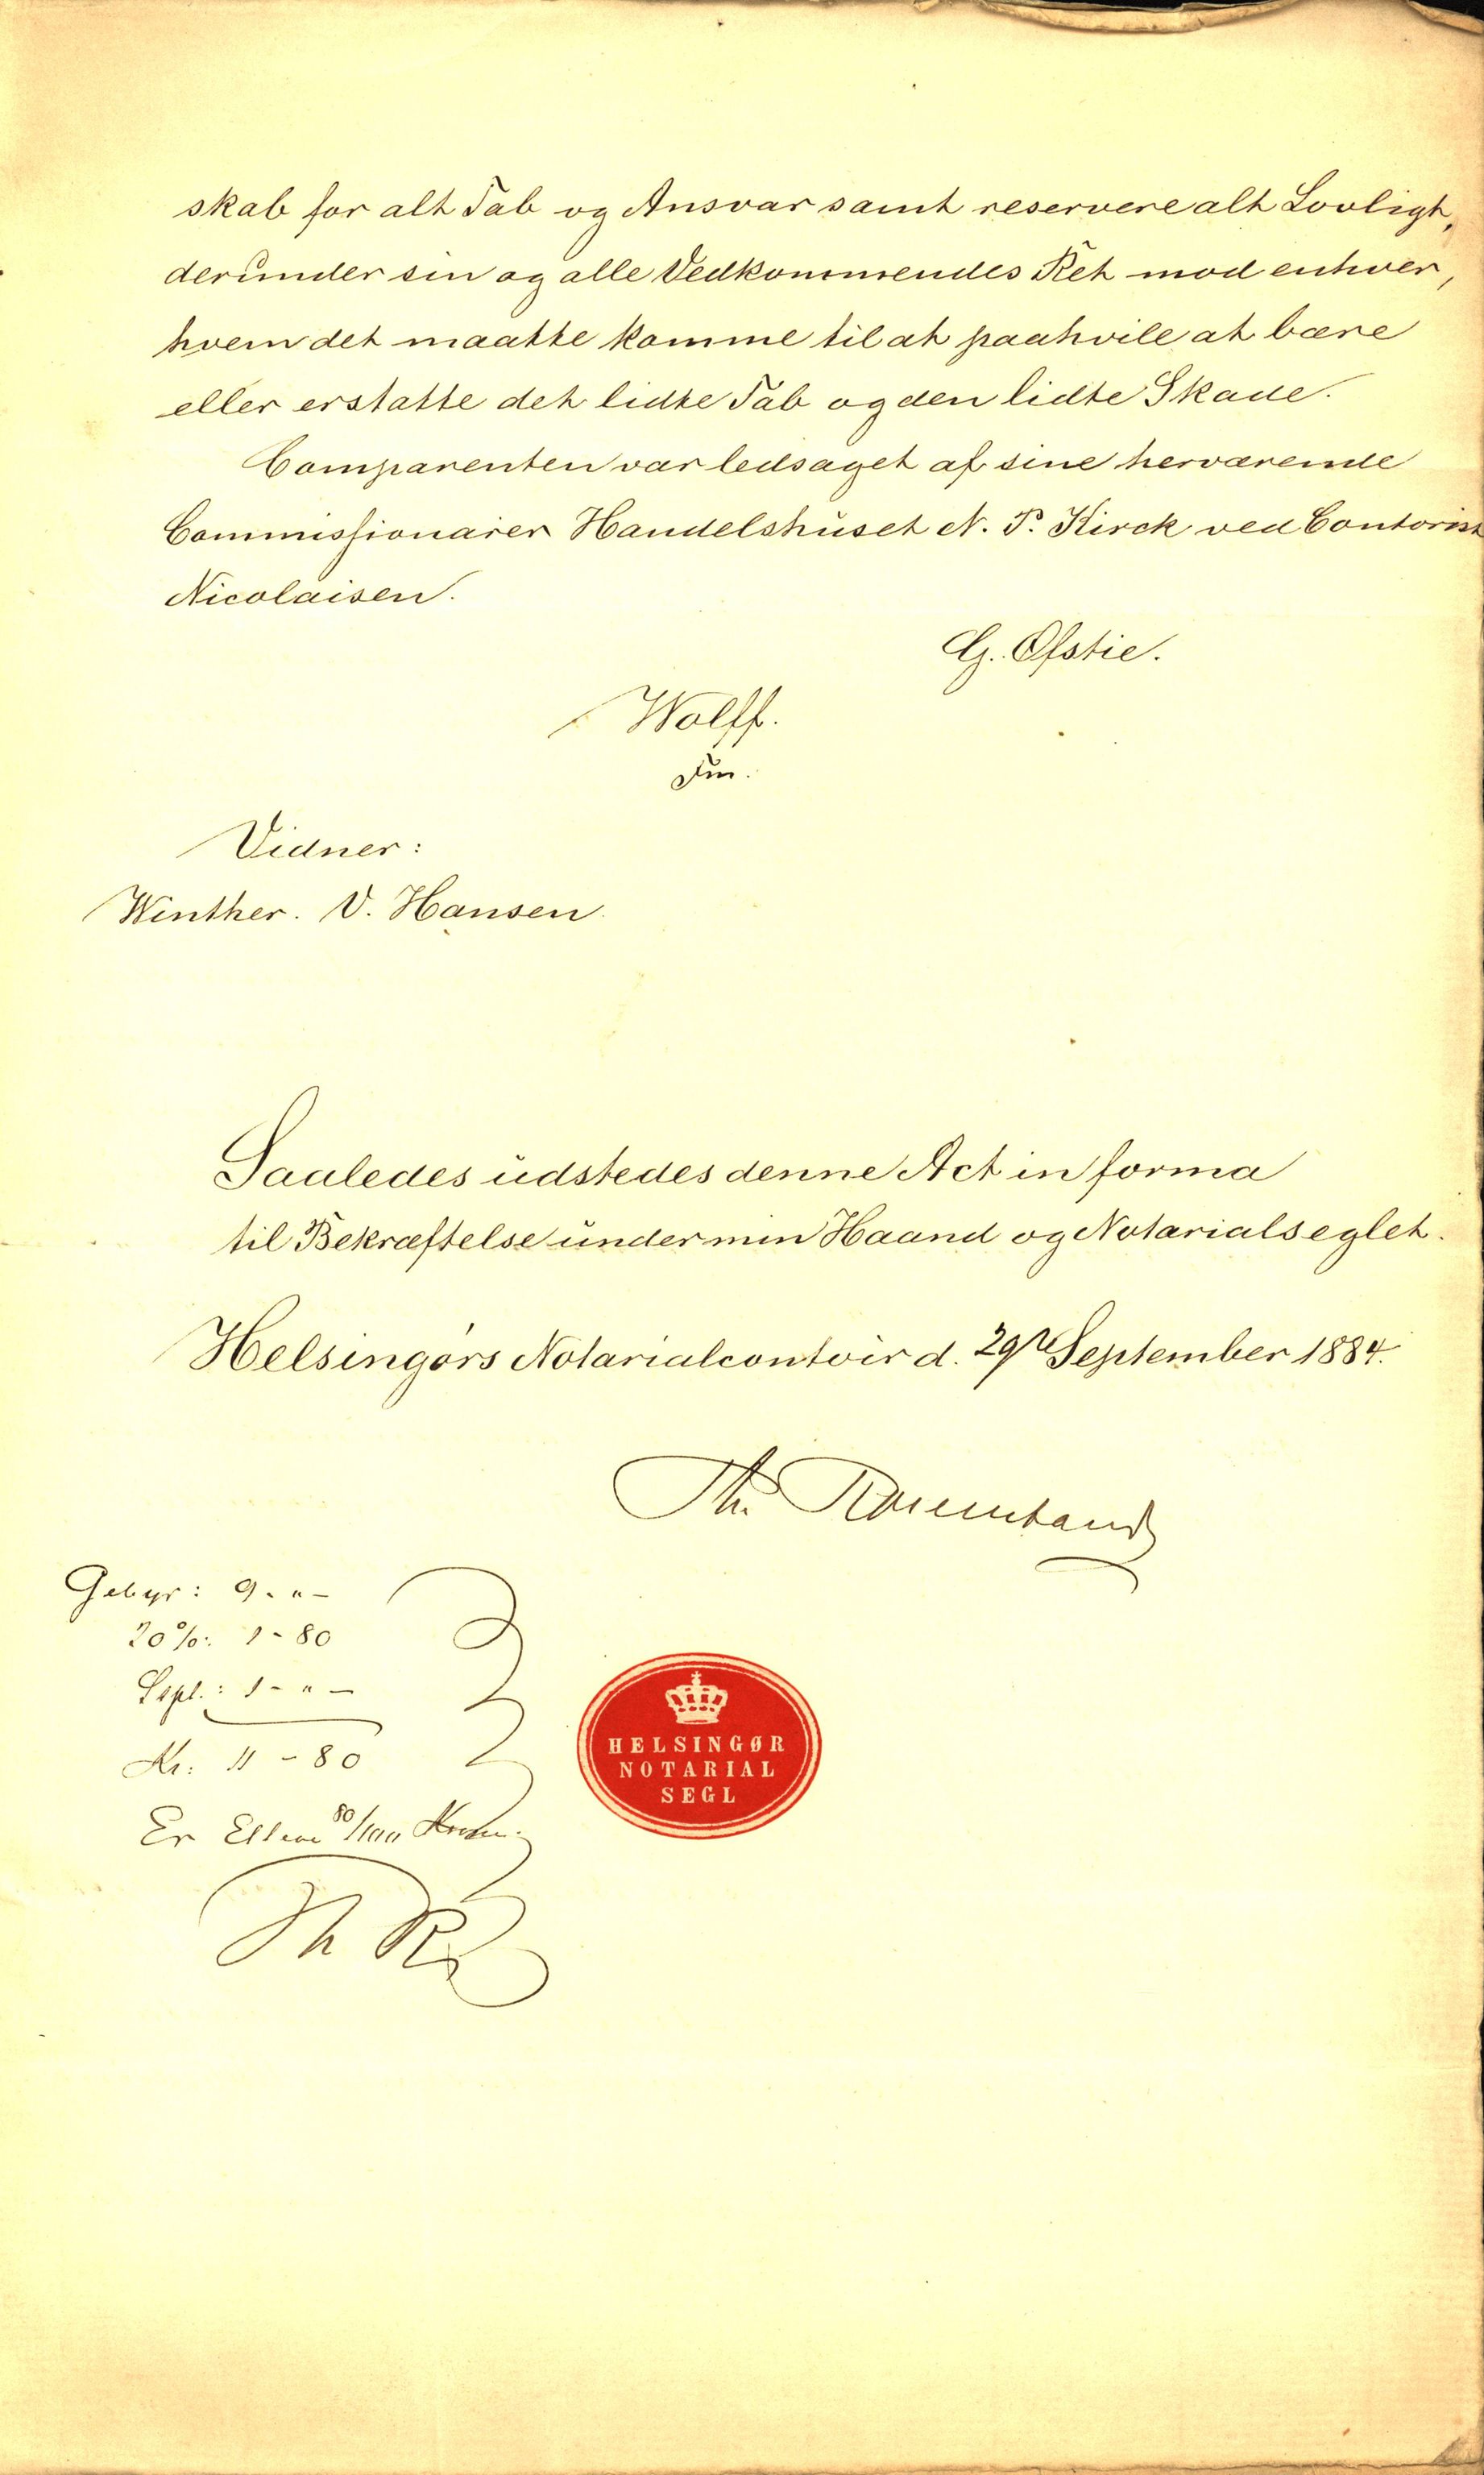 skab for alt Tab og Ansvar samt reservere alt Lovligt,
derunder sin og alle Vedkommendes Ret mod enhver,
hvem det maatte komme til at paahvile at bære
eller erstatte det lidte Tab og den lidte Skade.
Comparenten var ledsaget af sine herværende
Commissionairer Handelshuset N. P. Kirck ved Contorist
Nicolaisen.
G. Ofstie.
Wolff.
Fm.
Vidner:
Winther. V. Hansen.
Saaledes udstedes denne Act in forma
til Bekræftelse under min Haand og Notarialseglet.
Helsingørs Notarialcontoir d. 29de September 1884.
Th. Rosenstand
Gebyr: 9. " -
20%: 1 - 80
Sspl.: 1 - " -
Kr: 11 - 80
Er Elleve 80/100 Kroner.
Th R
HELSINGØR
NOTARIAL
SEGL